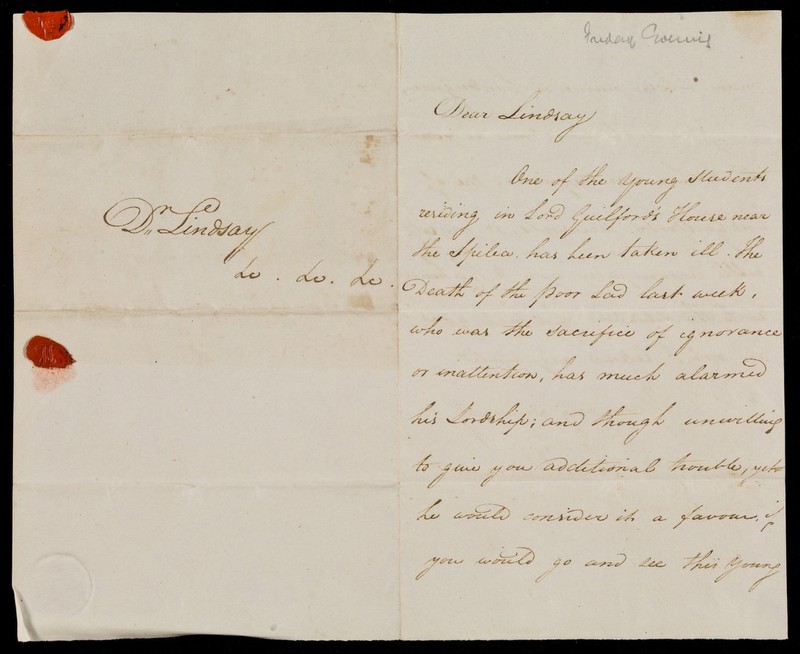 Dr. Lindsay
&c. &c. &c.
Friday Evening
Dear Lindsay
One of the young Students
residing in Lord Guilford's House near
the Spilea. has been taken ill. The
Death of the poor Lad last week,
who was the sacrifice of ignorance
or inattention, has much alarmed
his Lordship; and though unwilling
to give you additional trouble, yet
he would consider it a favour, if
you would go and see this young